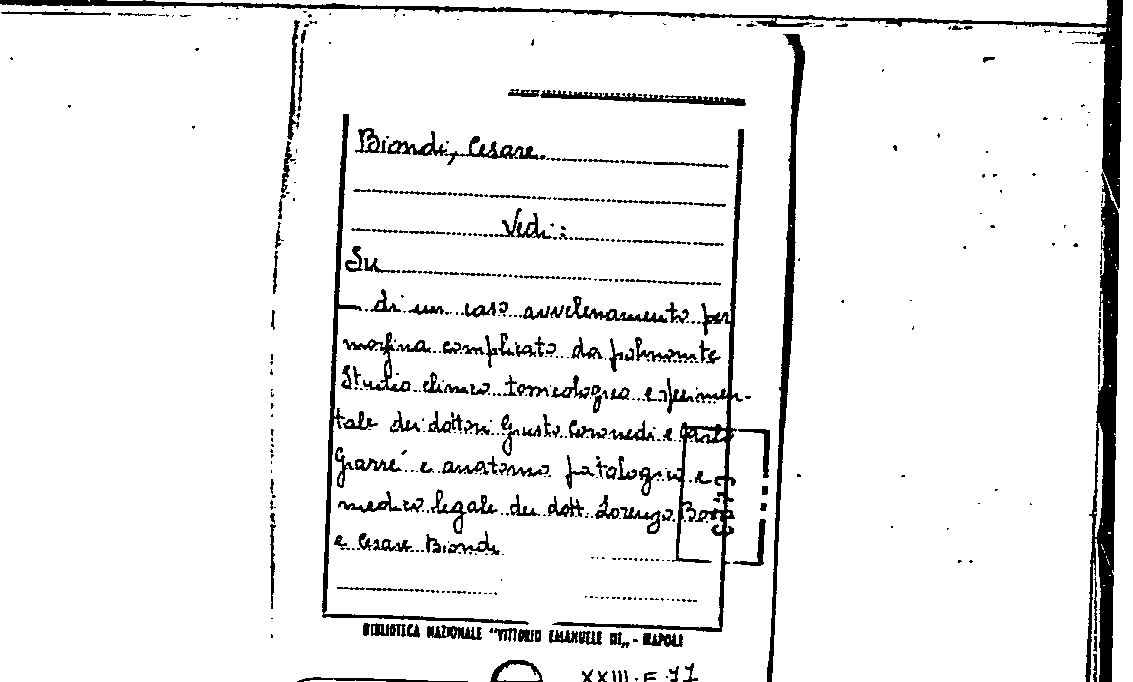 Biondi, Cesare.
Vedi:
Su
— di un caso avvelenamento per
morfina complicato da polmonite
Studio clinico tossicologico esperimen-
tale dei dottori Giusto Coronedi e Carlo
Garré e anatomo patologico e
medico legale dei dott. Lorenzo
e Cesare Biondi
BIBLIOTECA NAZIONALE "VITTORIO EMANUELE III„ - NAPOLI
XXIII.F.77